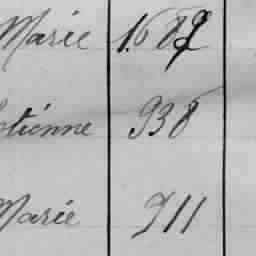 Marie 1.687
Etienne 938
Marie 911